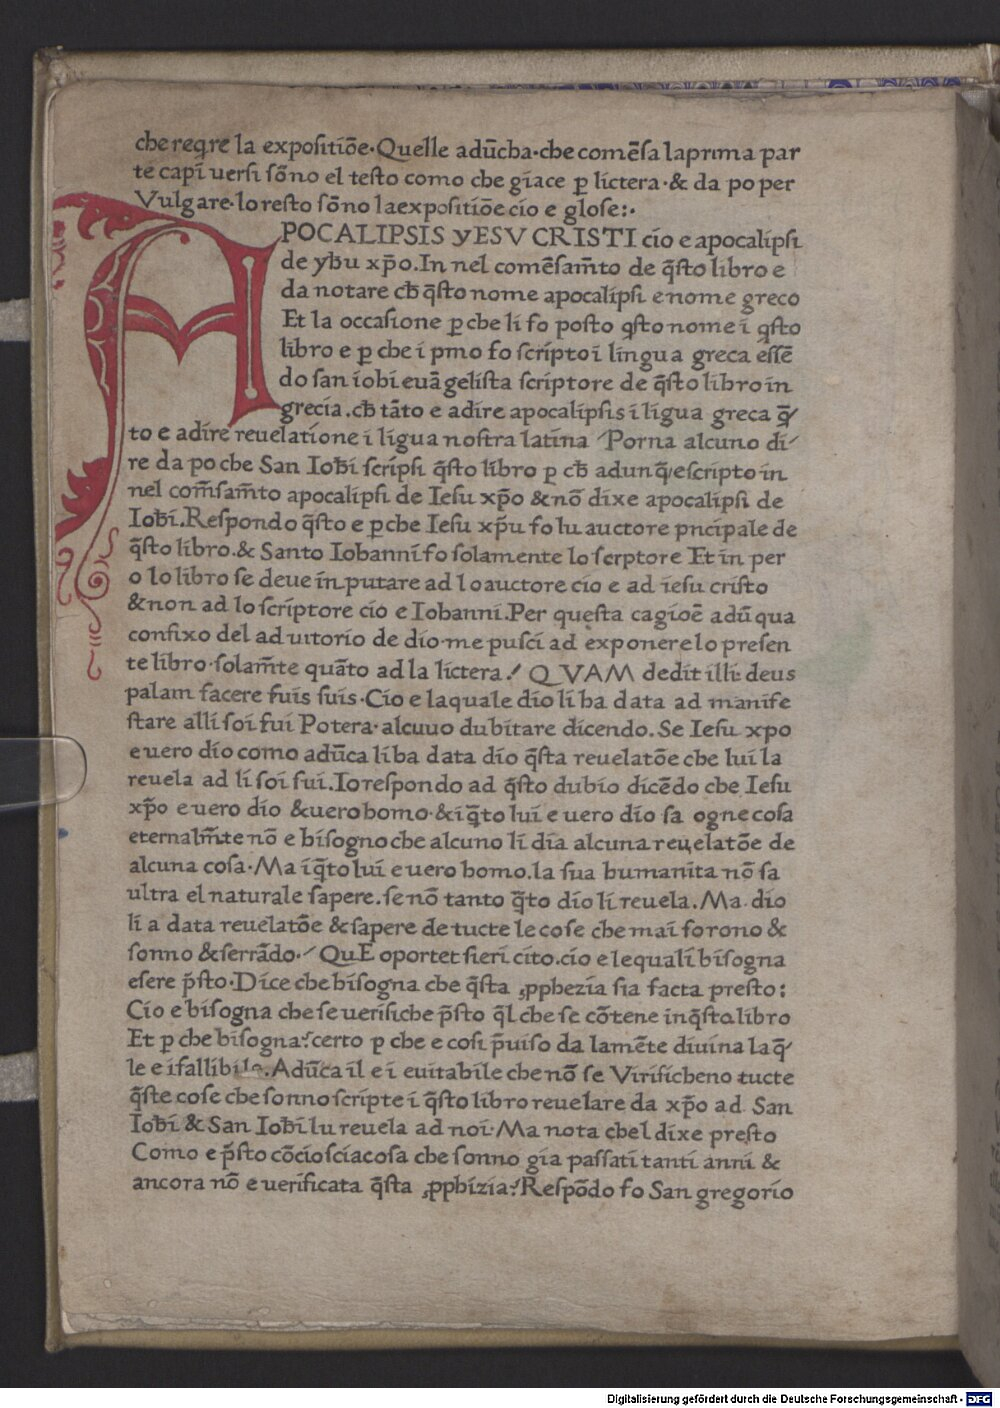 che reqre la expositiōe·Quelle adūcha·che comēsa laprima par
te capi uersi sōno el testo como che giace p̱ lictera·& da po per
Vulgare·lo resto sōno laexpositiōe cio e glose:·
APOCALIPSIS yESV CRISTI cio e apocalipsi
de yħu xp̄o.In nel comēsam̄to de q̄sto libro e
da notare cħ q̄sto nome apocalipsi e nome greco
Et la occasione p̱ che li fo posto q̄sto nome i q̄sto
libro e p̱ che i pmo fo scripto i lingua greca essē
do san iobi euāgelista scriptore de q̄sto libro in
grecia.cħ tāto e adire apocalipsis i ligua greca q̄/
to e adire reuelatione i ligua nostra latina /Porna alcuno di/
re da po che San Ioħi scripsi q̄sto libro p̱ cħ adunq̄/escripto in
nel com̄sam̄to apocalipsi de Iesu xp̄o & nō dixe apocalipsi de
Ioħi.Respondo q̄sto e p̱che Iesu xp̄u fo lu auctore pncipale de
q̄sto libro.& Santo Iohanni fo solamente lo scrptore Et in per
o lo libro se deue inputare ad lo auctore cio e ad iesu cristo
& non ad lo scriptore cio e Iohanni.Per questa cagioē adū qua
confixo del ad uitorio de dio·me pusci ad exponere lo presen
te libro·solam̄te quāto ad la lictera./ QVAM dedit illi: deus
palam facere fuis suis·Cio e laquale dio li ha data ad manife
stare alli soi fui Potera·alcuuo dubitare dicendo.Se Iesu xpo
e uero dio como adūca li ha data dio q̄sta reuelatōe che lui la
reuela ad li soi fui.Io respondo ad q̄sto dubio dicēdo che Iesu
xp̄o e uero dio & uero homo·& i q̄to lui e uero dio sa ogne cosa
eternalm̄te nō e bisogno che alcuno li dia alcuna reuelatōe de
alcuna cosa·Ma i q̄to lui e uero homo.la sua humanita nō sa
ultra el naturale sapere.se nō tanto q̄to dio li reuela.Ma dio
li a data reuelatōe & sapere de tucte le cose che mai forono &
sonno & serrādo·/ QuE oportet fieri cito.cio e lequali bisogna
esere p̄sto·Dice che bisogna che q̄sta ꝓphezia sia facta presto:
Cio e bisogna che se uerifiche p̄sto q̄l che se cōtene inq̄sto libro
Et p̱ che bisogna?certo p̱ che e cosi p̄uiso da la mēte diuina la q̄/
le e ifallibile.Adūca il e i euitabile che nō se Virificheno tucte
q̄ste cose che sonno scripte i q̄sto libro reuelare da xp̄o ad San
Ioħi & San Ioħi lu reuela ad noi·Ma nota chel dixe presto
Como e p̄sto cōciosciacosa che sonno gia passati tanti anni &
ancora nō e uerificata q̄sta ꝓphizia?Respōdo fo San gregorio
Digitalisierung gefördert durch die Deutsche Forschungsgemeinschaft - DFG